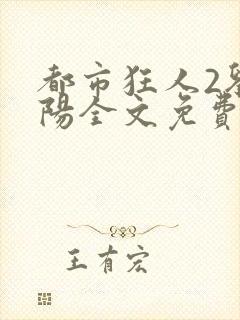 都市狂人2
陽全文免費
王有宏